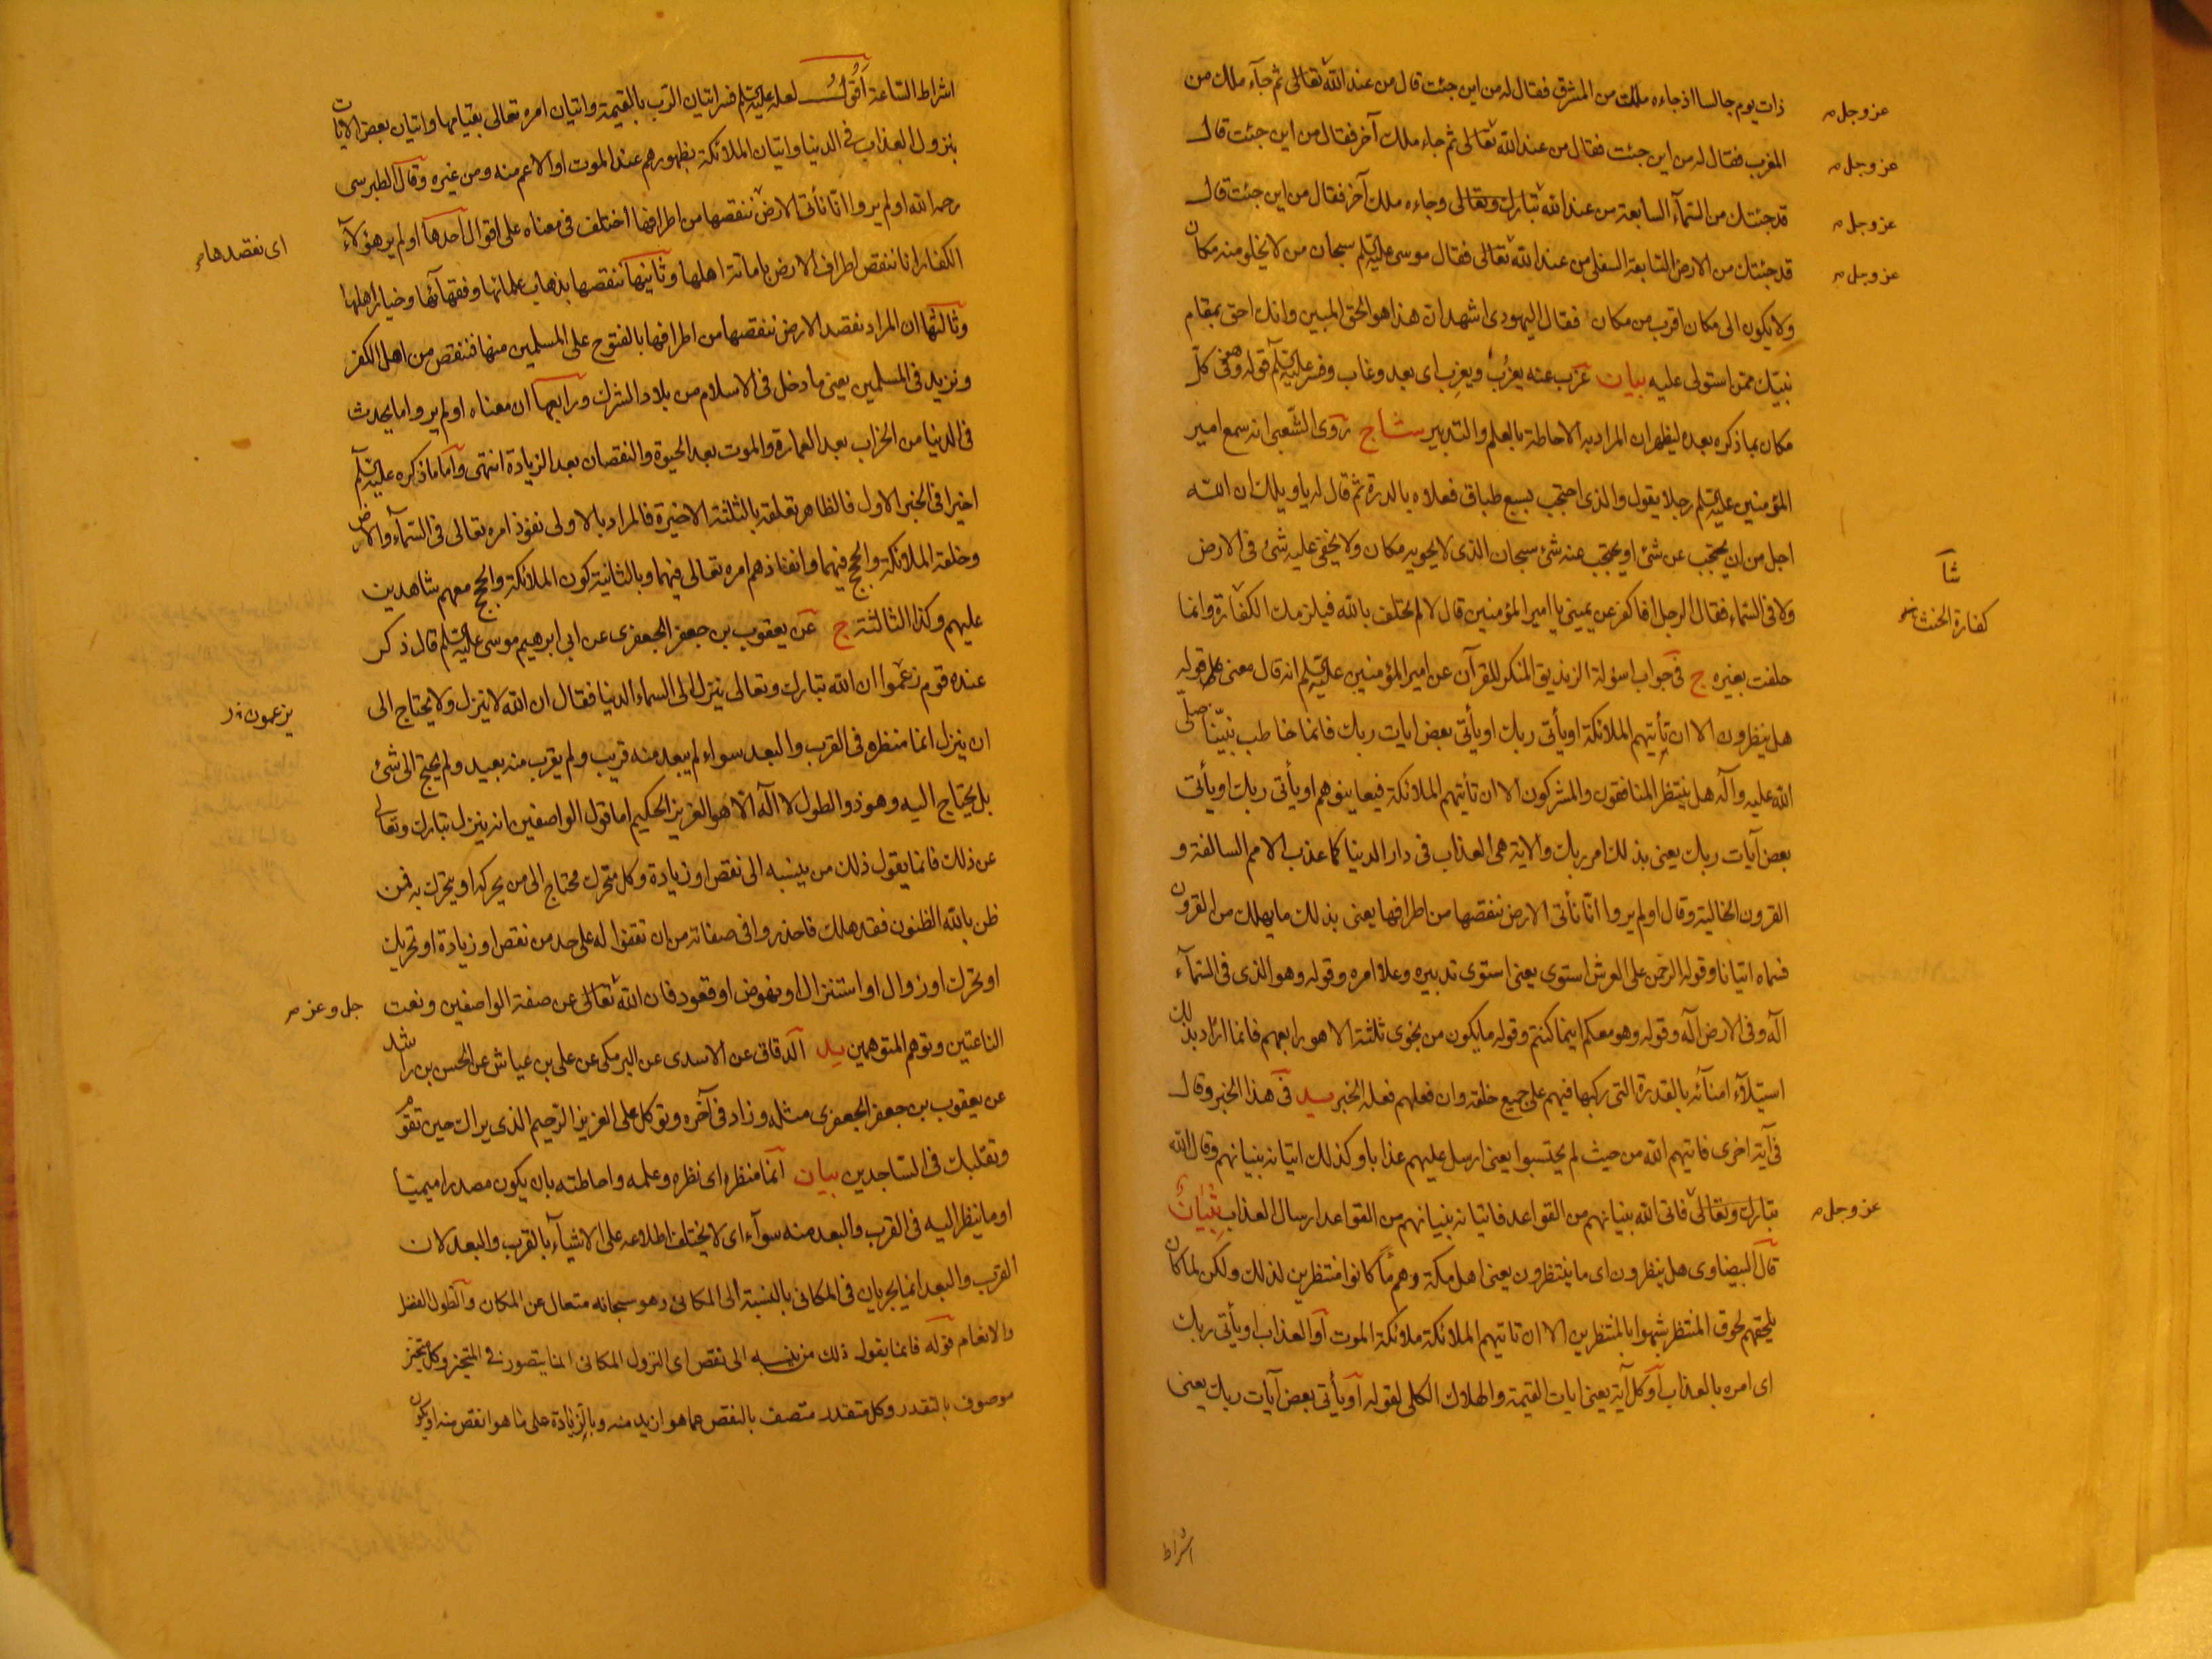 ذات يوم جالسا اذ جاءه ملك من المشرق فقال له من اين جئت قال من عند الله تعالى ثم جآء ملك من
عز وجل م
المغرب فقال له من اين جئت فقال من عند الله تعالى ثم جاء ملك آخر فقال من اين جئت قال
عز وجل م
قد جئتك من السمآء السابعة من عند الله تبارك وتعالى وجاءه ملك آخر فقال من اين جئت قال
عز وجل م
قد جئتك من الارض السابعة السفلى من عند الله تعالى فقال موسى عليه السلم سبحان من لا يخلو منه مكان
عز وجل م
ولا يكون الى مكان اقرب من مكان فقال اليهودى اشهد ان هذا هو الحق المبين وانك احق بمقام
نبيك ممن استولى عليه بيان عزب عنه يعزُب ويعزِب اى بعد وغاب وفسر عليه السلم قوله وهو فى كل
مكان بما ذكره بعده ليظهر ان المراد به الاحاطة بالعلم والتدبير شا ج روى الشعبى انه سمع امير
المؤمنين عليه السلم رجلا يقول والذى احتجب بسبع طباق فعلاه بالدرة ثم قال له يا ويلك ان الله
اجل من ان يحتجب عن شئ او يحتجب عنه شئ سبحان الذى لا يحويه مكان ولا يخفى عليه شئ فى الارض
شا
ولا فى السماء فقال الرجل افاكفر عن يمينى يا امير المؤمنين قال لا لم تحلف بالله فيلزمك الكفارة وانما
كفارة الحنث
حلفت بغيره ج فى جواب اسئولة الزنديق المنكر للقرآن عن امير المؤمنين عليه السلم انه قال معنى قوله
هل ينظرون الا ان تأتيهم الملائكة او يأتى ربك او يأتى بعض ايات ربك فانما خاطب نبيّنا صلى
الله عليه وآله هل ينتظر المنافقون والمشركون الا ان تأتيهم الملائكة فيعاينوهم او يأتى ربك او يأتى
بعض آيات ربك يعنى بذلك امر ربك والاية هى العذاب فى دار الدنيا كما عذب الامم السالفة و
القرون الخالية وقال اولم يروا انّا نأتى الارض ننقصها من اطرافها يعنى بذلك ما يهلك من القرون
فسماه اتيانا وقوله الرحمن على العرش استوى يعنى استوى تدبيره وعلا امره وقوله وهو الذى فى السمآء
آله وفى الارض آله وقوله وهو معكم اينما كنتم وقوله ما يكون من نجوى ثلثة الا هو رابعهم فانما اراد بذلك
استيلآء امنآئه بالقدرة التى ركبها فيهم على جميع خلقه وان فعلهم فعله الخبر يد فى هذا الخبر وقال
فى آية اخرى فاتيهم الله من حيث لم يحتسبوا يعنى ارسل عليهم عذابا وكذلك اتيانه بنيانهم وقال الله
تبارك وتعالى فاتى الله بنيانهم من القواعد فاتيانه بنيانهم من القواعد ارسال العذاب بيان
عز وجل م
قال البيضاوى هل ينظرون اى ما ينتظرون يعنى اهل مكة وهم ما كانوا منتظرين لذلك ولكن لما كان
يلحقهم لحوق المنتظر شبهوا بالمنتظرين الا ان تاتيهم الملائكة ملائكة الموت او العذاب او يأتى ربك
اى امره بالعذاب او كل آية يعنى ايات القيمة والهلاك الكلى لقوله او يأتى بعض آيات ربك يعنى
اشراط
اشراط الساعة اقول لعله عليه السلم فسر اتيان الرّب بالقيمة واتيان امره تعالى بقيامها واتيان بعض الايات
بنزول العذاب فى الدنيا واتيان الملائكة بظهورهم عند الموت او الاعم منه ومن غيره وقال الطبرسى
رحمه الله اولم يروا انّا نأتى الارض ننقصها من اطرافها اختلف فى معناه على اقوال احدها اولم ير هؤلآء
اى نقصدها م
الكفار انا ننقص اطراف الارض باماتة اهلها وثانيها ننقصها بذهاب علمائها وفقهآئها وخيار اهلها
وثالثها ان المراد نقصد الارض ننقصها من اطرافها بالفتوح على المسلمين منها فننقص من اهل الكفر
ونزيد فى المسلمين يعنى ما دخل فى الاسلام من بلاد الشرك ورابعها ان معناه اولم يروا ما يحدث
فى الدنيا من الخراب بعد العمارة والموت بعد الحيوة والنقصان بعد الزيادة انتهى واما ما ذكره عليه السلم
اخيرا فى الخبر الاول فالظاهر تعلقه بالثلثة الاخيرة فالمراد بالاولى نفوذ امره تعالى فى السمآء والارض
وخلقه الملائكة والحجج فيهما وانفاذهم امره تعالى فيهما وبالثانية كون الملائكة والحجج معهم شاهدين
عليهم وكذا الثالثة ج عن يعقوب بن جعفر الجعفرى عن ابى ابرهيم موسى عليه السلم قال ذكر
عنده قوم زعموا ان الله تبارك وتعالى ينزل الى السماء الدنيا فقال ان الله لا ينزل ولا يحتاج الى
يزعمون
ان ينزل انما منظره فى القرب والبعد سواء لم يبعد منه قريب ولم يقرب منه بعيد ولم يحتج الى شئ
بل يحتاج اليه وهو ذو الطول لا اله الا هو العزيز الحكيم اما قول الواصفين انه ينزل تبارك وتعالى
عن ذلك فانما يقول ذلك من ينسبه الى نقص او زيادة وكل متحرك محتاج الى من يحركه او يتحرك به فمن
ظن بالله الظنون فقد هلك فاحذروا فى صفاته من ان تقفوا له على حد من نقص او زيادة او تحريك
او تحرك او زوال او استنزال او نهوض او قعود فان الله تعالى عن صفة الواصفين ونعت
جل وعز م
الناعتين وتوهم المتوهمين يد الدقاق عن الاسدى عن البرمكى عن على بن عياش عن الحسن بن راشد
عن يعقوب بن جعفر الجعفرى مثله وزاد فى آخره وتوكل على العزيز الرّحيم الذى يراك حين تقوم
وتقلبك فى الساجدين بيان انما منظره اى نظره وعلمه واحاطته بان يكون مصدرا ميميّا
او ما ينظر اليه فى القرب والبعد منه سوآء اى لا يختلف اطلاعه على الاشيآء بالقرب والبعد لان
القرب والبعد انما يجريان فى المكانى بالنسبة الى المكانى وهو سبحانه متعال عن المكان والطول الفضل
والانعام قوله فانما يقول ذلك من ينسبه الى نقص اى النزول المكانى انما يتصور فى المتحيز وكل متحيز
موصوف بالتقدر وكل متقدر متصف بالنقص عما هو ازيد منه وبالزيادة على ما هو انقص منه او يكون